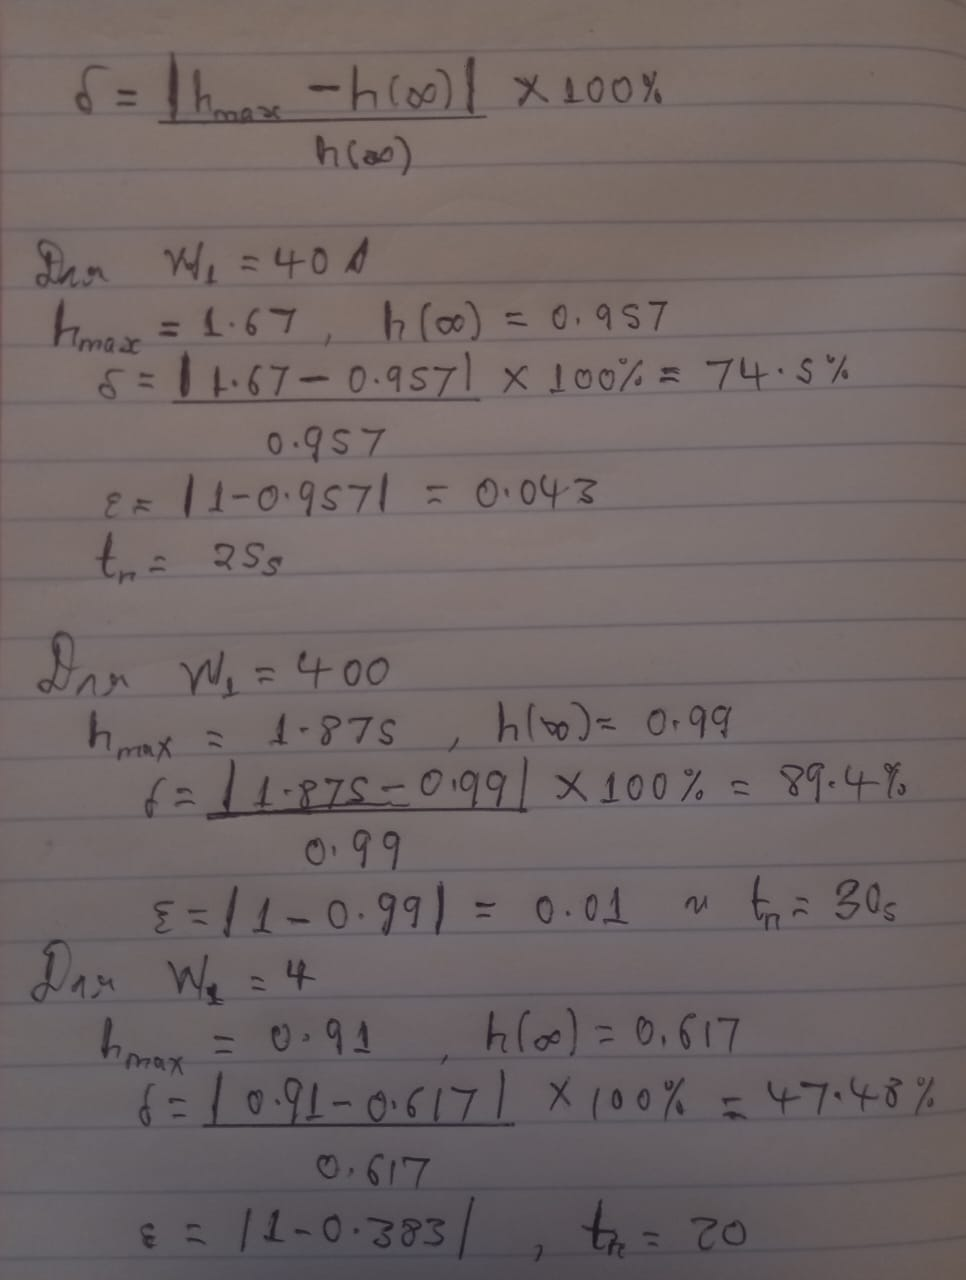 δ = |hmax - h(∞)| × 100%
h(∞)
Для W1 = 40
hmax = 1.67, h(∞) = 0.957
δ = |1.67 - 0.957| × 100% = 74.5%
0.957
ε = |1-0.957| = 0.043
tп = 25s
Для W1 = 400
hmax = 1.875, h(∞) = 0.99
δ = |1.875 - 0.99| × 100% = 89.4%
0.99
ε = |1-0.99| = 0.01 и tп = 30s
Для W1 = 4
hmax = 0.91, h(∞) = 0.617
δ = |0.91 - 0.617| × 100% = 47.48%
0.617
ε = |1-0.383|, tп = 20